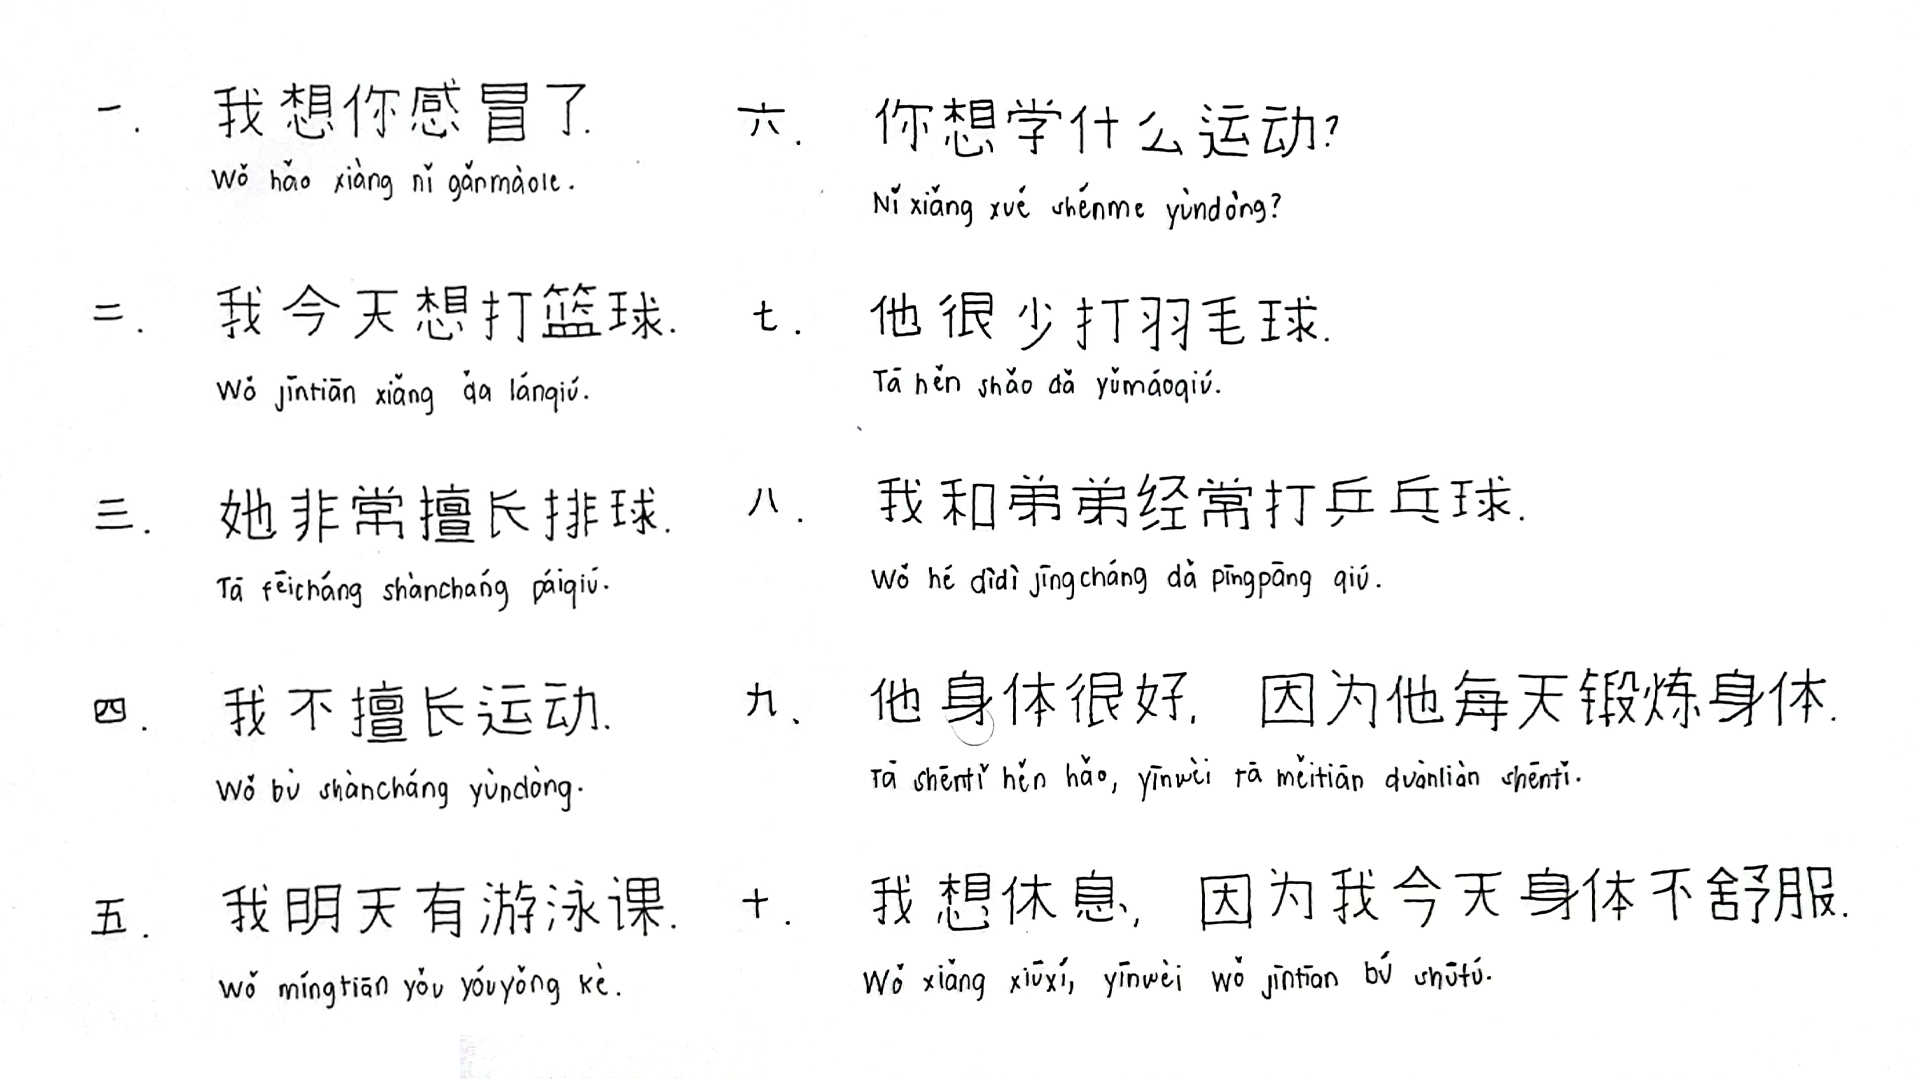 一. 我想你感冒了.
Wǒ hǎo xiàng nǐ gǎnmàole.
二. 我今天想打篮球.
Wǒ jīntiān xiǎng ďa lánqiú.
三. 她非常擅长排球.
Tā fēicháng shànchańg páiqiú.
四. 我不擅长运动.
Wǒ bù shàncháng yùndòng.
五. 我明天有游泳课.
Wǒ míngtiān yǒu yóuyǒng kè.
六. 你想学什么运动?
Nǐ xiǎng xué shénme yùndòng?
七. 他很少打羽毛球.
Tā hěn shǎo dǎ yǔmáoqiú.
八. 我和弟弟经常打乒乓球.
Wǒ hé dìdì jīngcháng dǎ pīngpāng qiú.
九、他身体很好, 因为他每天锻炼身体.
Tā shēntǐ hěn hǎo, yīnwèi tā měitiān duànliàn shēntǐ.
十. 我想休息, 因为我今天身体不舒服.
Wǒ xiǎng xiūxí, yīnwèi wǒ jīntīan bú shūfú.